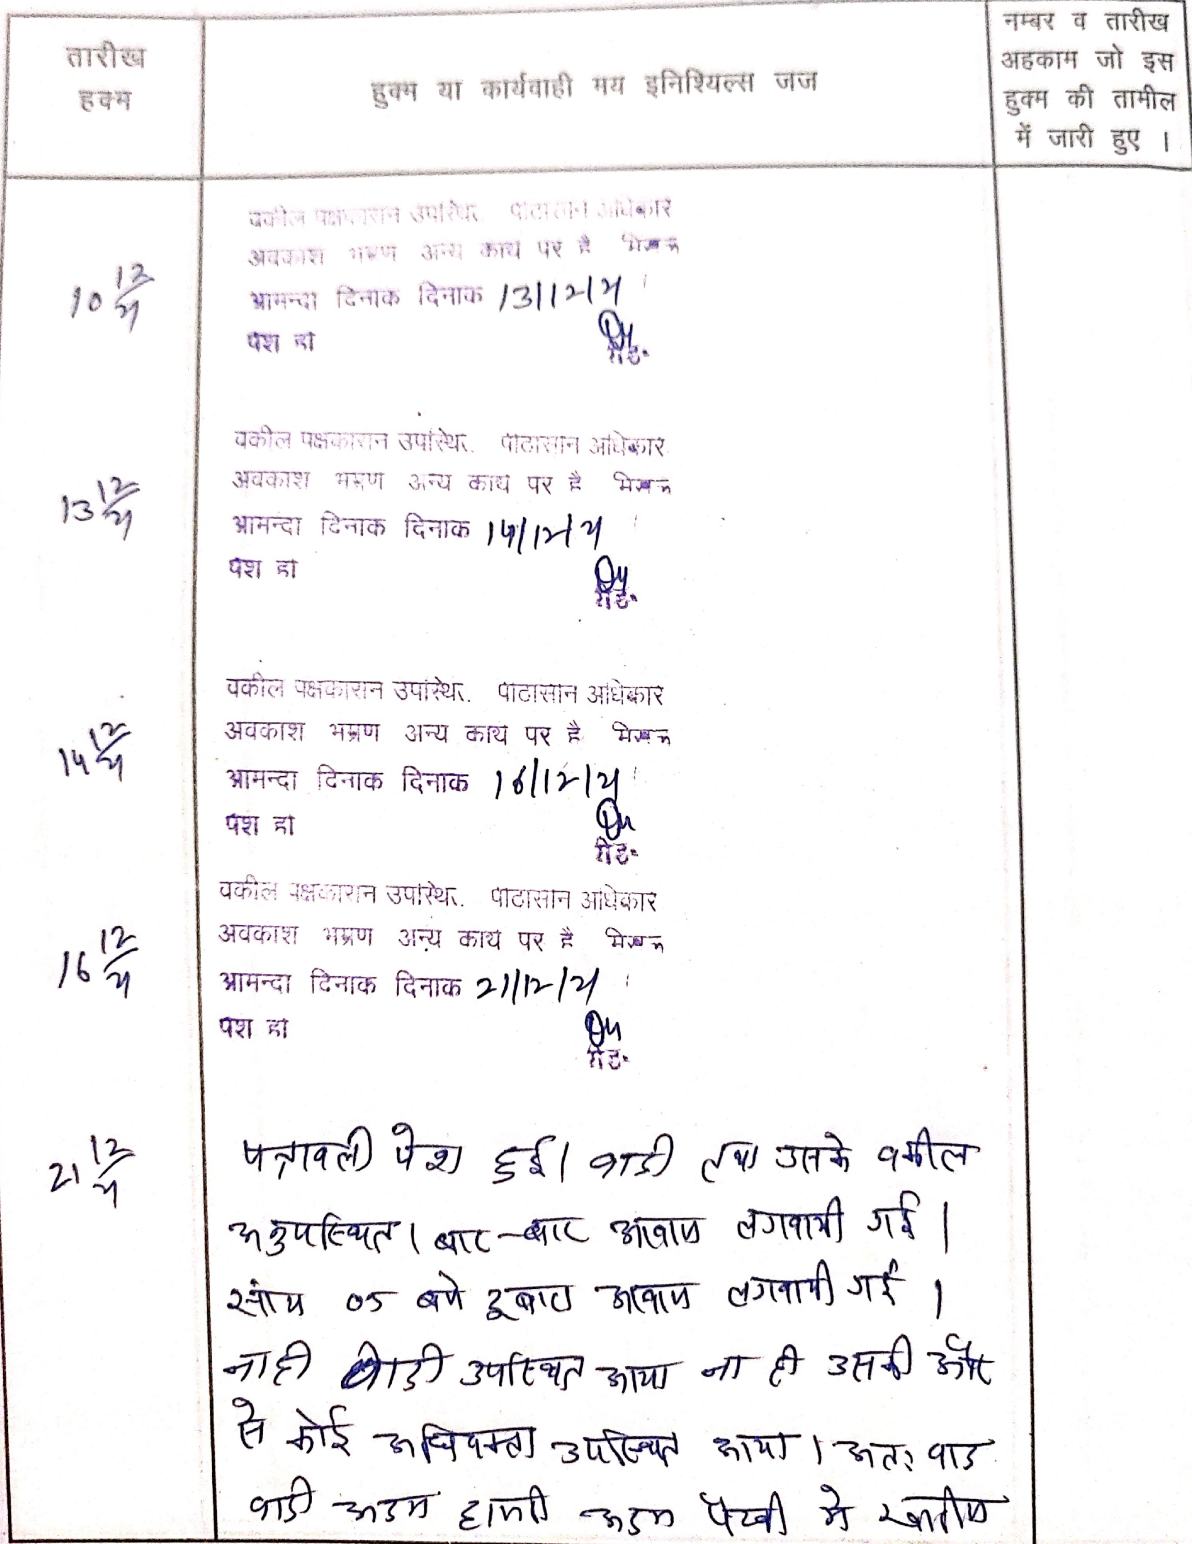 तारीख
हक्म
हुक्म या कार्यवाही मय इनिश्यिल्स जज
नम्बर व तारीख
अहकाम जो इस
हुक्म की तामील
में जारी हुए ।
10 12/21
वकील पक्षकारान उपस्थि. पीठासीन अधिकार
अवकाश भम्रण अन्य कार्य पर है मिसल
आमन्दा दिनाक दिनाक 13/12/21
पेश हो
रीड.
13 12/21
वकील पक्षकारान उपस्थि. पीठासीन अधिकार
अवकाश भम्रण अन्य कार्य पर है मिसल
आमन्दा दिनाक दिनाक 14/12/21
पेश हो
रीड.
14 12/21
वकील पक्षकारान उपस्थि. पीठासीन अधिकार
अवकाश भम्रण अन्य कार्य पर है मिसल
आमन्दा दिनाक दिनाक 16/12/21
पेश हो
रीड.
16 12/21
वकील पक्षकारान उपस्थि. पीठासीन अधिकार
अवकाश भम्रण अन्य कार्य पर है मिसल
आमन्दा दिनाक दिनाक 21/12/21
पेश हो
रीड.
21 12/21
पत्रावली पेश हुई। वादी तथा उसके वकील
अनुपस्थित। बार-बार आवाज लगवायी गई।
सांय 05 बजे दूबारा आवाज लगवायी गई।
ना ही वादी उपस्थित आया ना ही उसकी और
से कोई अधिवक्ता उपस्थित आया। अतः वाद
वादी अदम हाजरी अदम पैरवी मे खारीज